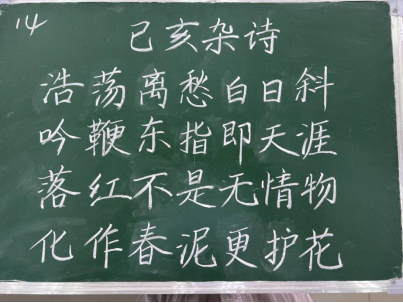 14
己亥杂诗
浩荡离愁白日斜
吟鞭东指即天涯
落红不是无情物
化作春泥更护花